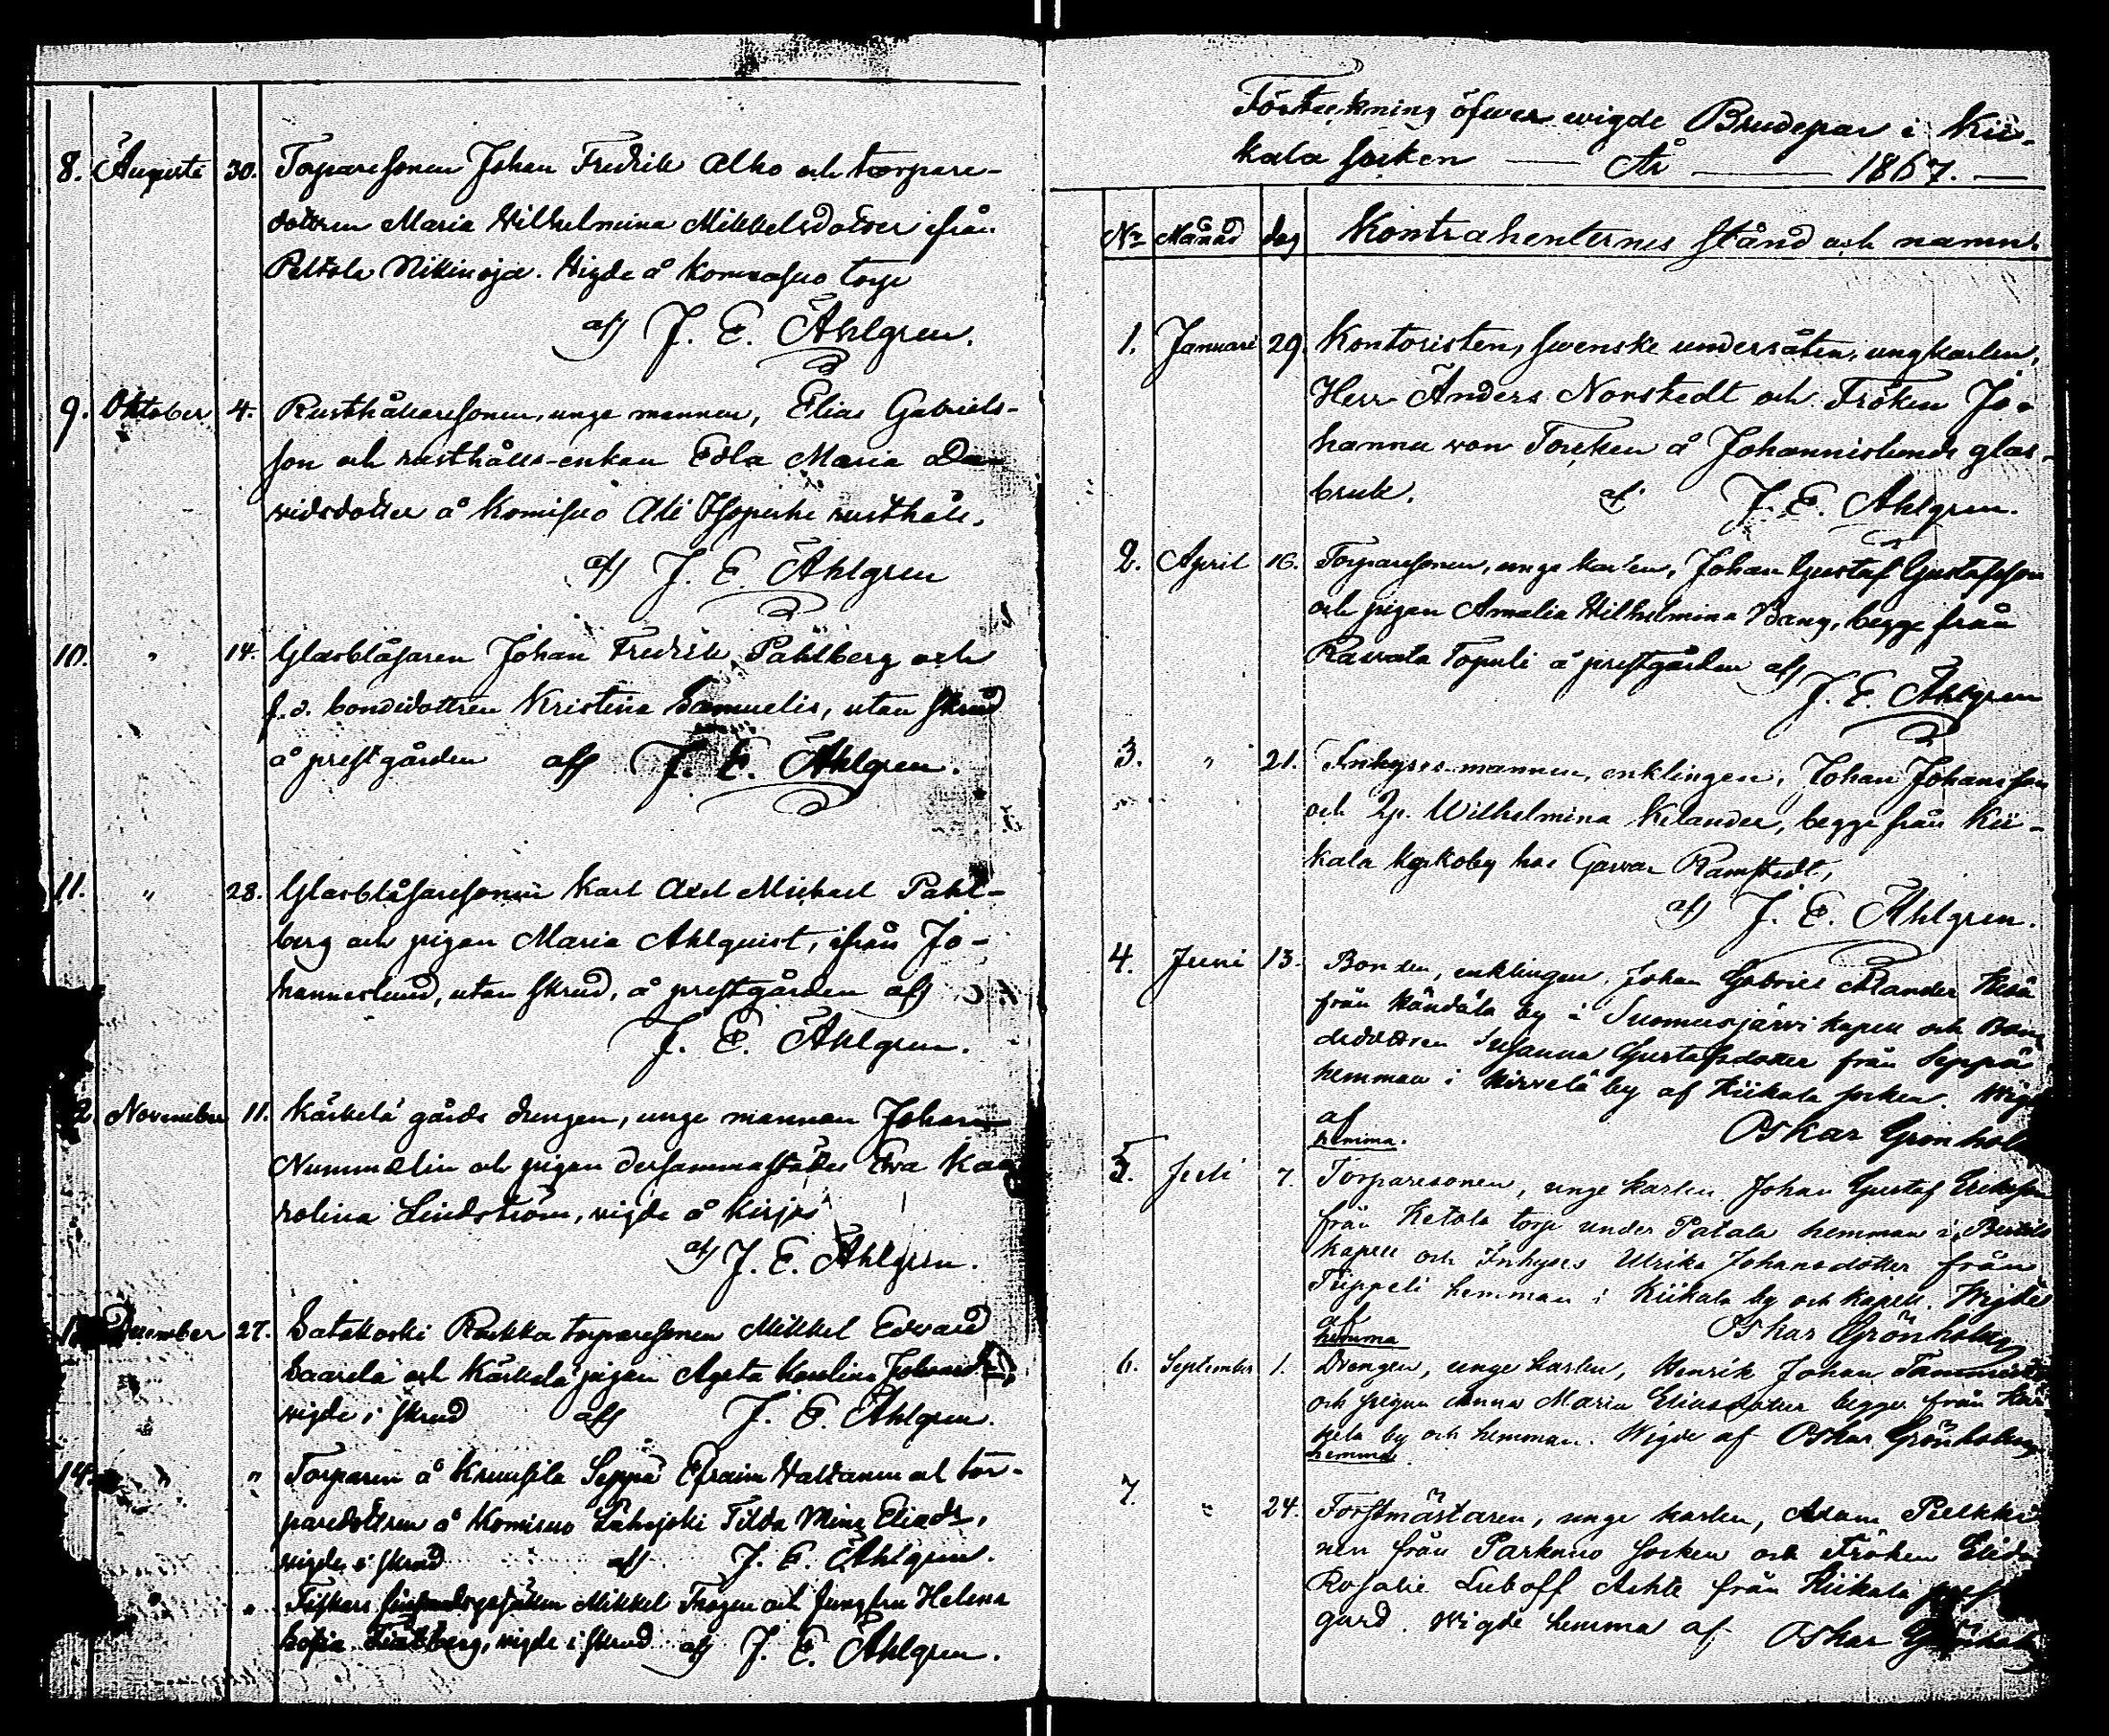 8. Augusti 30. Torparesonen Johan Fredrik Alho och torpare-
dottren Maria Wilhelmina Mikkelsdotter ifrån
Peltola Nikinoja. Wigde å Komrasuo torp
af J. E. Ahlgren.
9. Oktober 4. Rusthållaresonen, unge mannen, Elias Gabriels-
son och rusthålls-enkan Edla Maria Da-
vidsdotter å Komisuo Ali Isoperhe rusthåll.
af J. E. Ahlgren
10. " 14. Glasblåsaren Johan Fredrik Pahlberg och
f.d. bondedottren Kristina Samuelis, utan skrud
å prestgården af J. E. Ahlgren.
11. " 28. Glasblåsaresonen Karl Axel Michael Pahl-
berg och pigan Maria Ahlquist, ifrån Jo-
hanneslund, utan skrud, å prestgården af
J. E. Ahlgren.
2. November 11. Kärkelä gårds drengen, unge mannen Johan
Nummelin och pigan dersammastädes Eva Ka-
rolina Lindström, wigde å Kirjas
af J. E. Ahlgren.
December 27. Satakoski Raekka torparesonen Mikkel Edvard
Saarela och Kärkelä pigan Agata Karolina
wigde i skrud af J. E. Ahlgren.
14. " " Torparen å Kruusila Seppä Efraim Valtanen och tor-
paredottren å Komisuo Lähojoki Tilda Mina Eliasdr,
wigde i skrud af J. E. Ahlgren.
" " Fiskars Mikkel Trogen och Jungfru Helena
Sofia wigde i skrud af J. E. Ahlgren.
Förteckning öfwer wigde Brudepar i Kii-
kala socken — År — 1867. —
No Månad dag Kontrahenternes stånd och namn
1. Januari 29. Kontoristen, swenske undersåten, ungkarlen,
Herr Anders Norstedt och Fröken Jo-
hanna von Torcken å Johannislunds glas-
bruk. af J. E. Ahlgren.
2. April 16. Torparesonen, unge karlen, Johan Gustaf Gustafsson
och pigan Amalia Wilhelmina Bang, begge från
Rawata Topuli å prestgården af
J. E. Ahlgren
3. " 21. Inhyses mannen, enklingen, Johan Johansson
och Qp. Wilhelmina Kelander, begge från Kii-
kala kyrkoby hos Garvar Ramstedt,
af J. E. Ahlgren.
4. Juni 13. Bonden, enklingen, Johan Gabriel Alander Kesä
från Kändälä by i Suomusjärvi kapell och Bon-
dedottren Susanna Gustafsdotter från Seppä
hemman i Hirvelä by af Kiikala socken. Wigd
af
hemma. Oskar Grönhol
5. Juli 7. Torparesonen, unge karlen, Johan Gustaf Eriksson
från Ketola torp under Patala hemman i
kapell och Inhyses Ulrika Johansdotter från
Trippeli hemman i Kiikala by och kapell. Wigde
af
hemma Oskar Grönholm
6. September 1. Drengen, unge karlen, Henrik Johan Tammisto
och pigan Anna Maria Eliasdotter begge från Kär-
kelä by och hemman. Wigde af Oskar Grönholm
hemma.
7. " 24. Forstmästaren, unge karlen, Adam Pelkki-
nen från Parkano socken och Fröken Elida
Rosalie Luboff Achte från Kiikala prest
gård. Wigde hemma af Oskar Grönholm